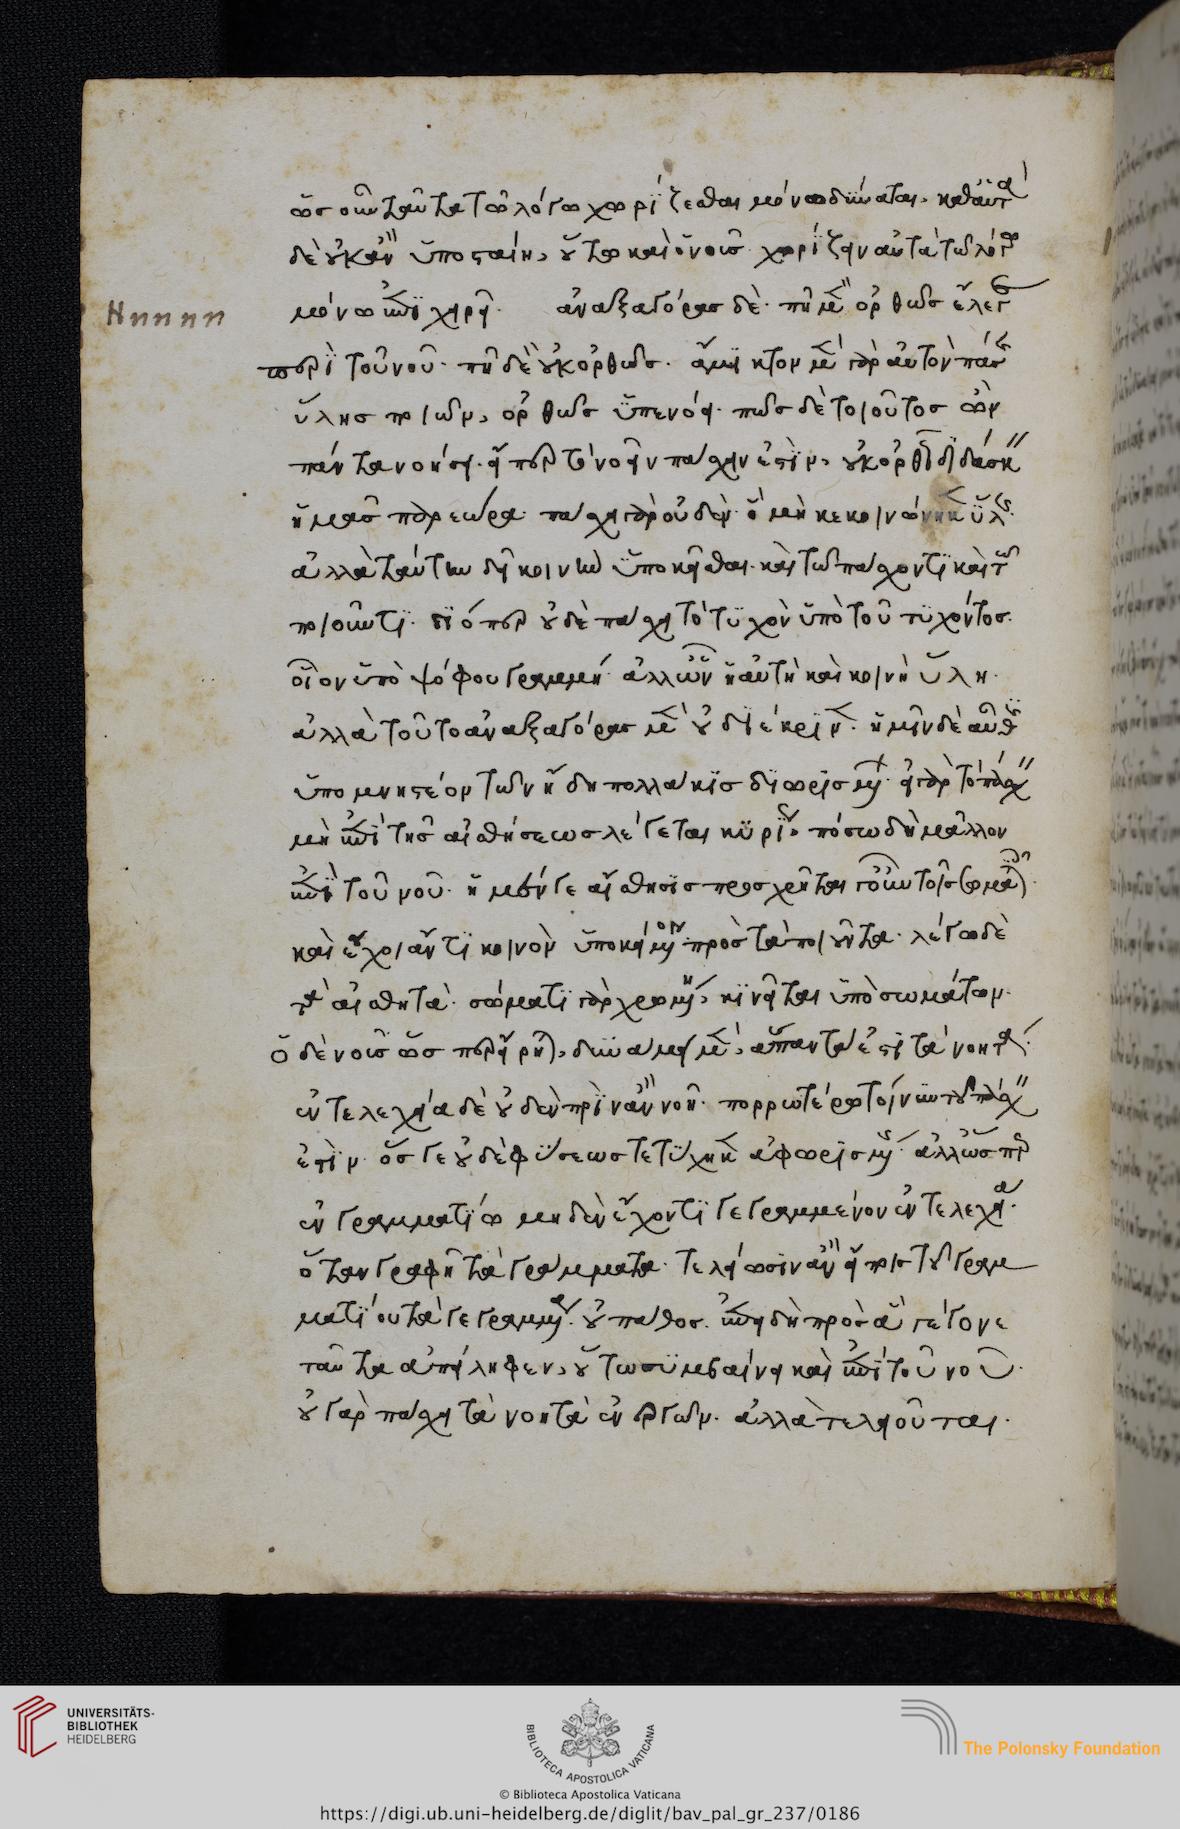 ὡς οὖν ταῦτα τῷ λόγῳ χωρίζεσθαι μόνῳ δύναται, καθ' αὑτὰ
δὲ οὐκ ἂν ὑποσταίη, οὕτω καὶ ὁ νοῦς χωρίζειν αὐτὰ τῷ λόγῳ
μόνῳ ἐπιχειρεῖ. ἀναξαγόρας δὲ πῆ μὲν ὀρθῶς ἔλεγε
Hnnnn
περὶ τοῦ νοῦ. πῆ δὲ οὐκ ὀρθῶς. ἀμιγῆ τὸν μὲν γὰρ αὐτὸν πάσης
ὕλης ποιῶν, ὀρθῶς ὑπενόει. πῶς δὲ τοιοῦτος ὢν
πάντα νοήσει. εἴπερ τὸ νοεῖν πάσχειν ἐστὶν, οὐκ ὀρθῶς διδάσκειν
ἡμᾶς παρεώρα. πάσχει γὰρ οὐδὲν ὃ μὴ κεκοινώνηκεν ὕλης.
ἀλλὰ ταύτην δεῖ κοινὴν ὑποκεῖσθαι καὶ τῷ πάσχοντι καὶ τῷ
ποιοῦντι. διόπερ οὐδὲ πάσχει τὸ τυχὸν ὑπὸ τοῦ τυχόντος.
οἷον ὑπὸ ψόφου γραμμή. ἀλλ' ὧν ἡ αὐτὴ καὶ κοινὴ ὕλη.
ἀλλὰ τοῦτο ἀναξαγόρας μὲν οὐ διέκρινεν. ἡμῖν δὲ αὖθις
ὑπομνηστέον τῶν ἤδη πολλάκις διωρισμένων. εἰ γὰρ τὸ πάσχειν
μὴ ἐπὶ τῆς αἰσθήσεως λέγεται κυρίως, πόσῳ δὴ μᾶλλον
ἐπὶ τοῦ νοῦ. ἡ μέν γε αἴσθησις προσχρῆται γοῦν τοῖς σώμασι.
καὶ ἔχοι ἄν τι κοινὸν ὑποκείμενον πρὸς τὰ ποιοῦντα. λέγω δὲ
τὰ αἰσθητά. σώματι γὰρ χρωμένη, κινεῖται ὑπὸ σωμάτων.
ὁ δὲ νοῦς ὥσπερ εἴρηται, δυνάμει μὲν, ἅπαντά ἐστι τὰ νοητά.
ἐντελεχείᾳ δὲ οὐδὲν πρὶν ἂν νοῇ. πορρωτέρω τοίνυν τοῦ πάσχειν
ἐστὶν. ὅς γε οὐδὲ φύσεως τετύχηκεν ἀφωρισμένης. ἀλλ' ὥσπερ
ἐν γραμματίῳ μηδὲν ἔχοντι γεγραμμένον ἐντελεχείᾳ.
ὅταν γραφῇ τὰ γράμματα. τελείωσιν ἂν εἴποις τοῦ γραμ
ματίου τὰ γεγραμμένα. οὐ πάθος. ἐπεὶ δὴ πρὸς ἃ γέγονε
ταῦτα ἀπείληφεν, οὕτω συμβαίνει καὶ ἐπὶ τοῦ νοῦ.
οὐ γὰρ πάσχει τὰ νοητὰ ἐνεργῶν. ἀλλὰ τελειοῦται.
UNIVERSITÄTS-
BIBLIOTHEK
HEIDELBERG
BIBLIOTECA APOSTOLICA VATICANA
The Polonsky Foundation
© Biblioteca Apostolica Vaticana
https://digi.ub.uni-heidelberg.de/diglit/bav_pal_gr_237/0186